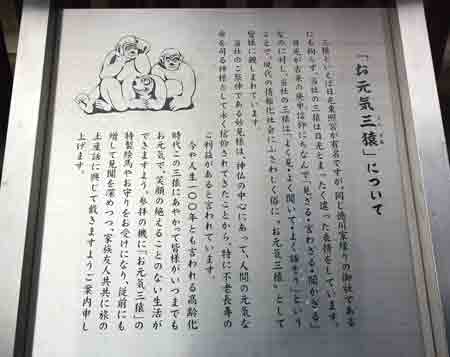 「お元気三猿」について
三猿といえば日光東照宮が有名ですが、同じ徳川家縁りの御社である
にも拘らず、当社の三猿は日光とまったく違った表情をしています。
日光が古来の庚申信仰にちなんで「見ざる・言わざる・聞かざる」
なのに対し、当社の三猿は「よく見・よく聞いて・よく話そう」という
ことで、現代の情報化社会にふさわしく俗に、〝お元気三猿〟として
皆様に親しまれています。
当社のご祭神である妙見様は、神仏の中心にあって、人間の元気な
命を司る神様として永く信仰されてきたことから、特に不老長寿の
ご利益があると言われています。
今や人生一〇〇年とも言われる高齢化
時代この三猿にあやかって皆様がいつまでも
お元気で、笑顔の絶えることのない生活が
できますよう、参拝の機に「お元気三猿」の
特製絵馬やお守りをお受けになり、従前にも
増して見聞を深めつつ、家族友人共共に旅の
土産話に興じて戴きますようご案内申し
上げます。